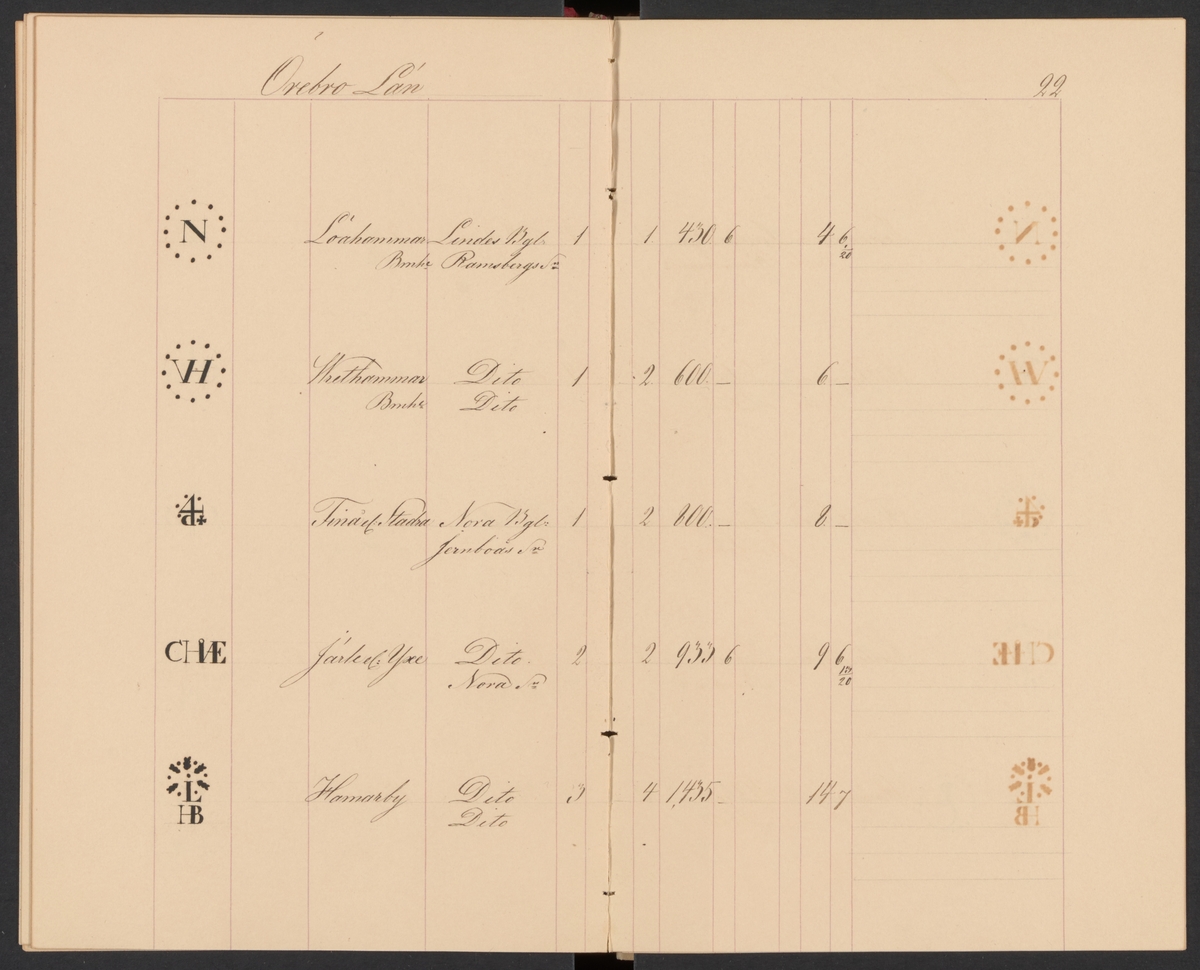 Örebro Län 22
N Löahammar Lindes Bgl. 1 1 430 6 4 6
Bmhr Ramsbergs Sn 20
VH Dito 1 2 600 – 6 –
Bmhr Dito
Tinä Stadra Nora Bgl. 1 2 800 – 8 –
Jernboås Sn
CHÅÆ Järle & Yxe Dito 2 2 933 6 9 6
Nora Sn 20
L Hamarby Dito 3 4 1,435 – 14 7
HB Dito